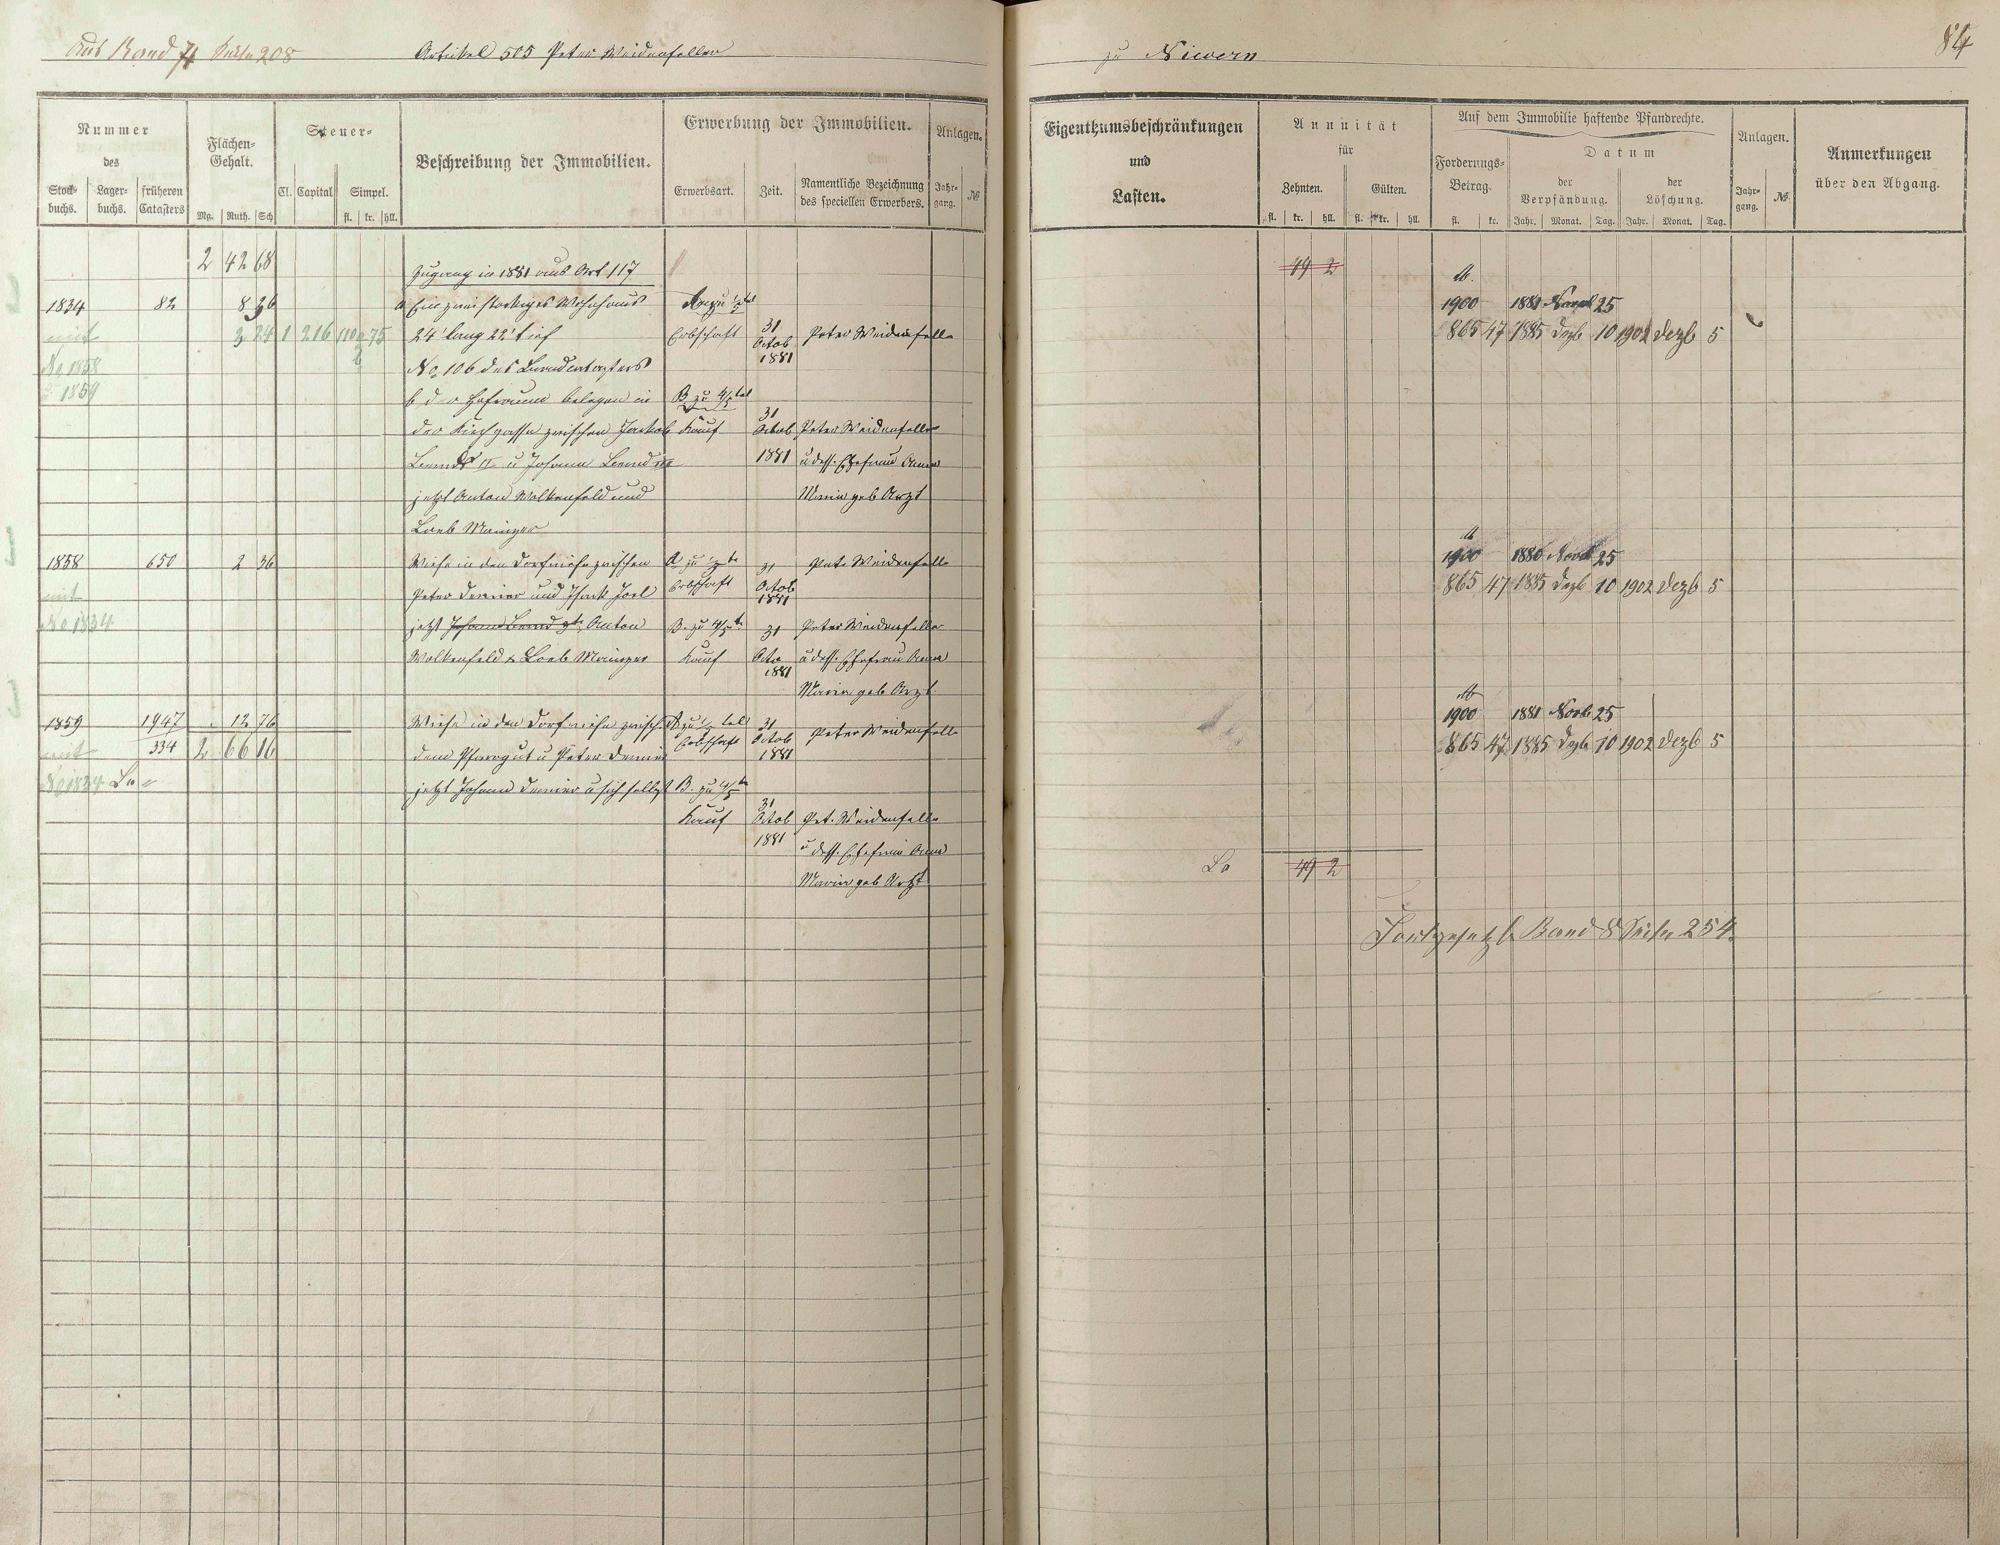 Aus Band 7 Seite 208
Artikel 505 Peter Weidenfeller
zu Nievern
84
Nummer
des
Stock-
buchs.
Lager-
buchs.
früheren
Catasters
Flächen-
Gehalt.
Mg. Ruth. Sch
Steuer-
Cl. Capital Simpel.
fl. kr. hll.
Beschreibung der Immobilien.
Erwerbung der Immobilien.
Erwerbsart. Zeit.
Namentliche Bezeichnung
des speciellen Erwerbers.
Anlagen.
Jahr-
gang.
№
Eigenthumsbeschränkungen
und
Lasten.
Annuität
für
Zehnten. Gülten.
fl. kr. hll. fl. kr. hll.
Auf dem Immobilie haftende Pfandrechte.
Forderungs-
Betrag.
fl. kr.
Datum
der
Verpfändung.
Jahr. Monat. Tag.
der
Löschung.
Jahr. Monat. Tag.
Anlagen.
Jahr-
gang.
№
Anmerkungen
über den Abgang.
2 42 68
Zugang in 1881 aus Art 117
49 2
M.
1834 82 8 36 a Ein zweistockiges Wohnhaus
1900 1881 Novb 25
mit 3 24 1 216 24' lang 22' tief Erbschaft 31 Octob 1881 Peter Weidenfeller
865 47 1885 Dezb 10 1902 Dezb 5
No 1858 No 106 des Brandcatasters
1859 b der Hofraum belegen in B zu 4/5 tel
der Kirchgasse zwischen Jackob Kauf 31 Octob 1881 Peter Weidenfeller
u dess. Ehefrau Anna
jetzt Anton Wolkenfeld und Maria geb Arzt
Loeb Mainzer
M
1858 650 2 36 Wiese in den Dorfwiese zwischen Pet. Weidenfeller
1900 1880 Novb 25
mit Peter Demier und Isack Joel Erbschaft 31 Octob 1881
865 47 1885 Dezb 10 1902 Dezb 5
No 1834 jetzt Anton B. zu 4/5 31 Peter Weidenfeller
Wolkenfeld & Loeb Mainzer Kauf Octo 1881 u dess. Ehefrau Anna
Maria geb Arzt
M
1859 1947 12 76 Wiese in den Dorfwiese zwisch. 31 Octob 1881 Peter Weidenfeller
1900 1881 Novb 25
mit 334 2 66 16 dem Pfarrgut u Peter Demier Erbschaft
865 47 1885 Dezb 10 1902 Dezb 5
No 1834 jetzt Johann Demier u sich selbst B. zu 4/5
Kauf 31 Octob 1881 Pet. Weidenfeller
u dess. Ehefrau Anna
Maria geb Arzt
49 2
Fortgesetzt Band 8 Seite 254.